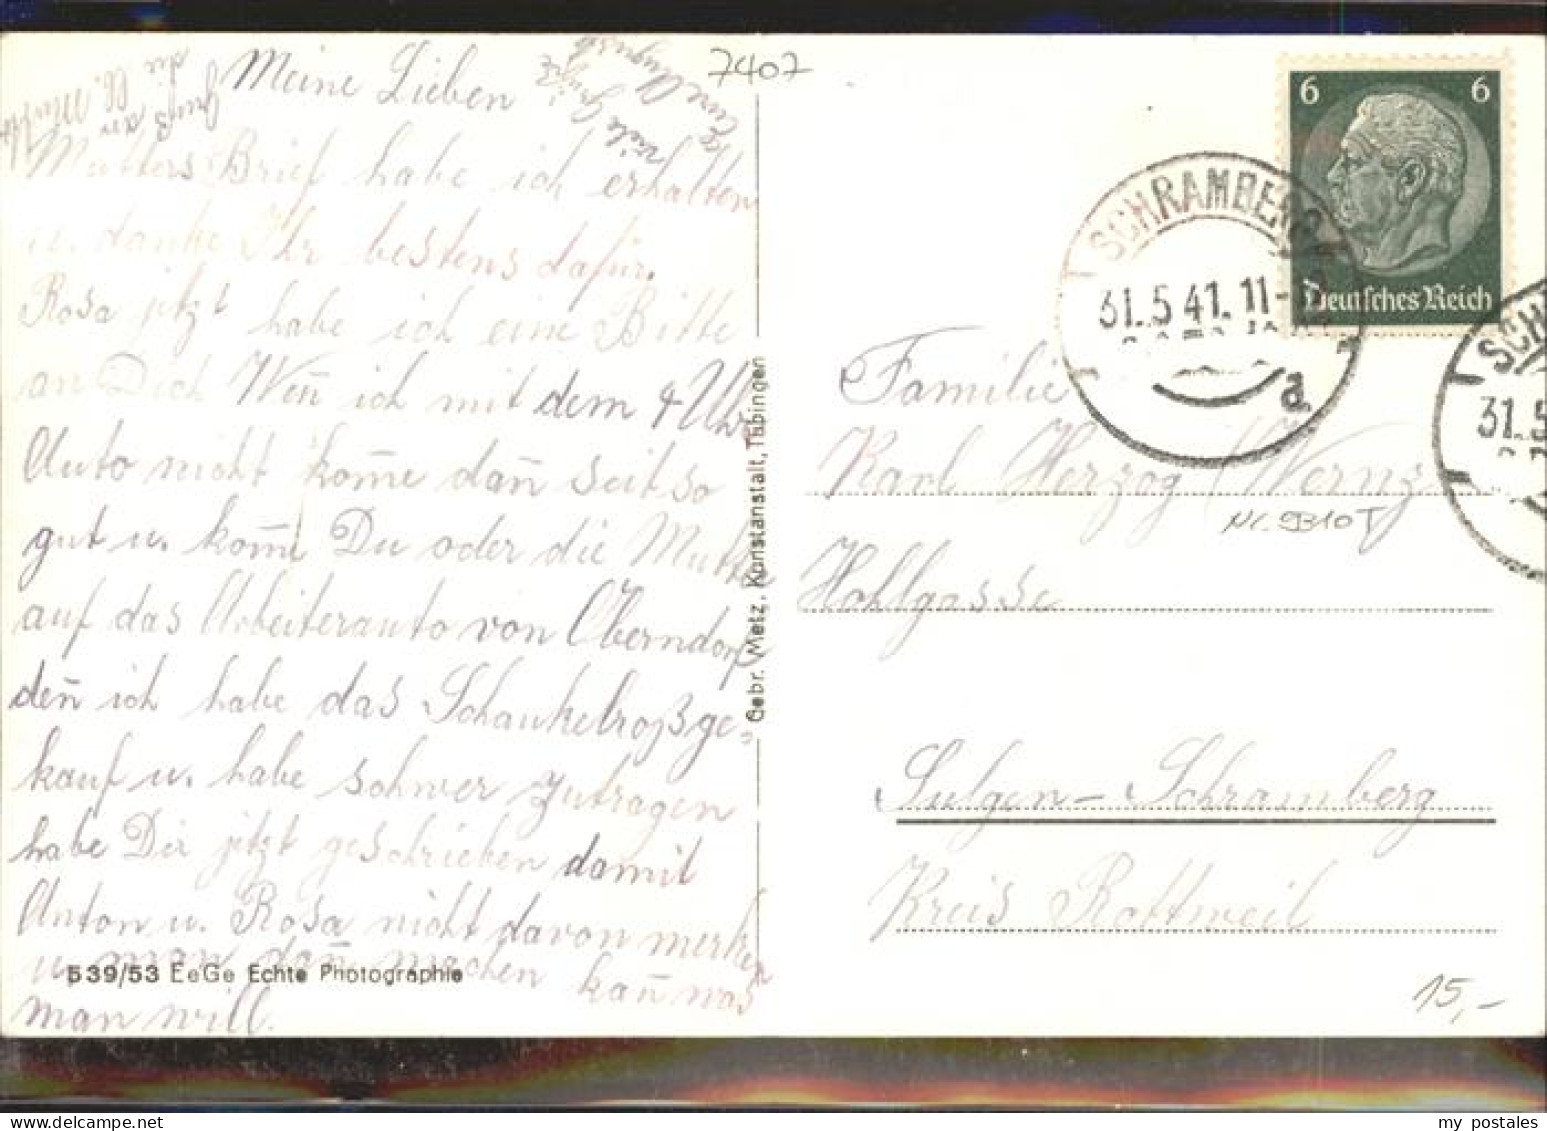 7407
Meine Lieben
Mutters Brief habe ich erhalten
u. danke Ihr bestens dafür.
Rosa jetzt habe ich eine Bitte
an Dich Wen̄ ich mit dem 4 Uhr
Auto nicht kom̄e dan̄ seit so
gut u. kom̄t Du oder die Mutter
auf das Arbeiterauto von Oberndorf
den̄ ich habe das Schaukelroßge-
kauf u. habe schwer zutragen
habe Dir jetzt geschrieben damit
Anton u. Rosa nicht davon merken
u. man dan̄ machen kan̄ was
man will.
viele Grüße
Eure Auguste
Gruß an
die lb. Mutter
539/53 EeGe Echte Photographie
Gebr. Metz, Kunstanstalt, Tübingen
6 6
Deutsches Reich
SCHRAMBERG
31.5.41.11-
a
SCH
31.5
Familie
Karl Herzog (Wernz
Nr. 9310T
Hohlgasse
Sulgen-Schramberg
Kreis Rottweil
15,-
my postales